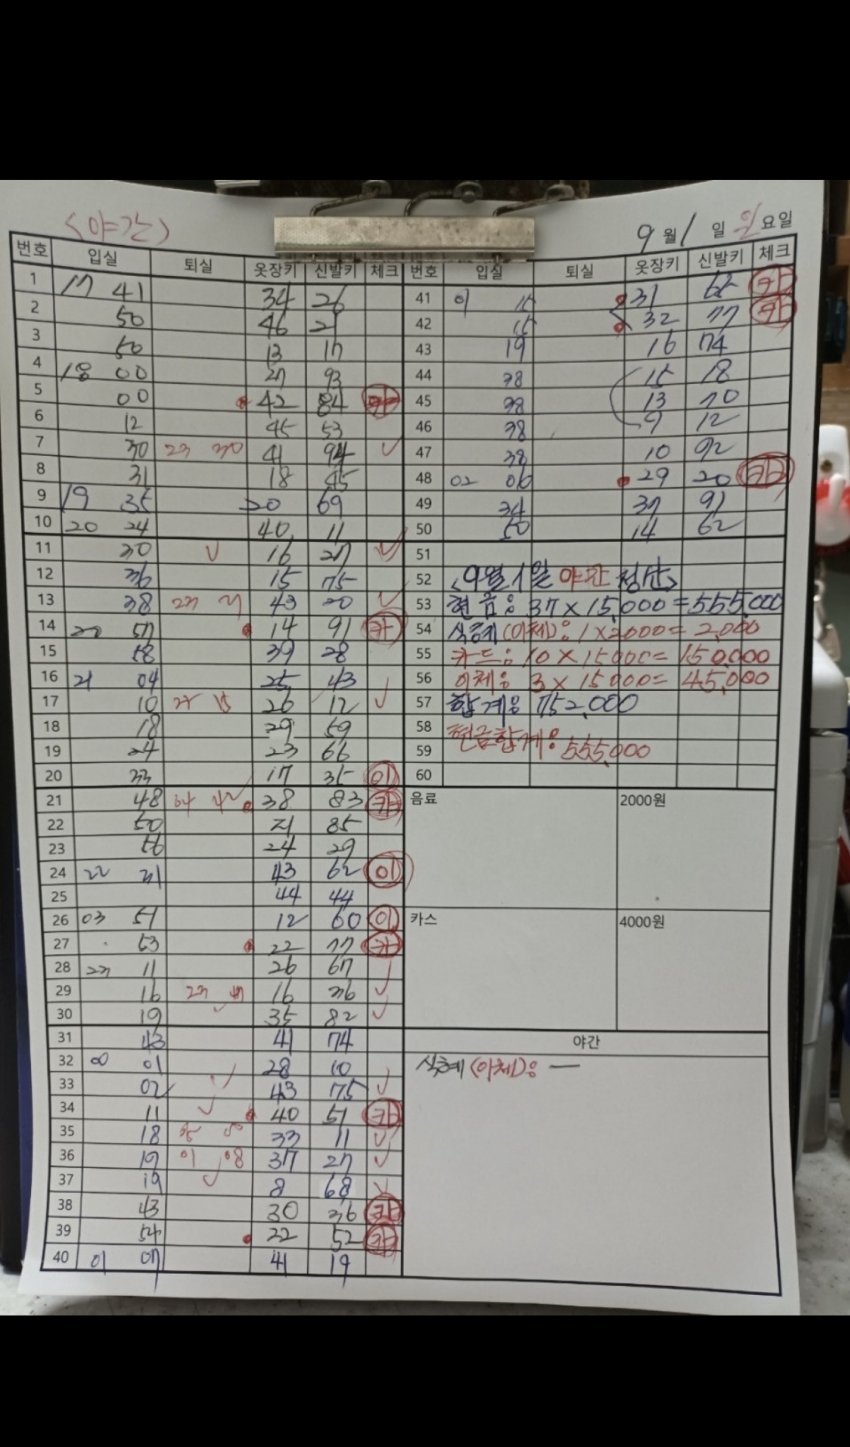 <야간>
9월 1일 월요일
번호 입실 퇴실 옷장키 신발키 체크 번호 입실 퇴실 옷장키 신발키 체크
1 17 41 34 26
2 50 46 21
3 50 13 17
4 18 00 27 93
5 00 42 84 카
6 12 45 53
7 30 23 30 41 94 ✓
8 31 18 45
9 19 35 20 69
10 20 24 40 11
11 30 ✓ 16 27 ✓
12 36 15 75
13 38 43 20 ✓
14 57 14 91 카
15 58 39 28
16 21 04 25 43
17 10 26 12 ✓
18 18 29 59
19 24 23 66
20 33 17 35 이
21 48 04 42 38 83 카
22 50 21 85
23 56 24 29
24 22 31 43 62 이
25 44 44
26 03 51 12 60 이
27 53 22 77 카
28 23 11 26 67
29 16 16 36 ✓
30 19 35 82 ✓
31 43 41 74
32 00 01 28 10
33 02 ✓ 43 75 ✓
34 11 ✓ 40 51 카
35 18 33 11 ✓
36 19 01 08 37 27 ✓
37 19 ✓ 8 68
38 43 30 36 카
39 54 22 52 카
40 01 07 41 19
41 01 15 31 68 카
42 15 32 77 카
43 19 16 74
44 38 15 18
45 38 13 70
46 38 9 12
47 38 10 92
48 02 06 29 20 카
49 34 37 91
50 50 14 62
51
52 <9월 1일 야간 정산>
53 현금: 37 x 15,000 = 555,000
54 식혜(이체): 1 x 2000 = 2,000
55 카드: 10 x 15000 = 150,000
56 이체: 3 x 15000 = 45,000
57 합계: 752,000
58 현금합계: 555,000
59
60
음료 2000원
카스 4000원
야간
식혜(이체): —